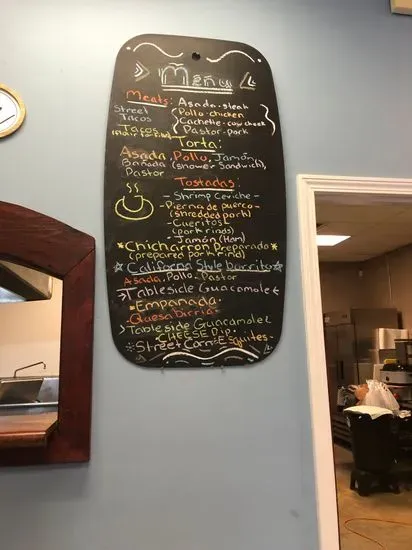 Menu
Meats: Asada - steak
Street Pollo - chicken
Tacos Cachette - cow cheek
Tacos Pastor - pork
Torta:
Asada, Pollo, Jamón,
Bañada (smower Sandwich),
Pastor
Tostadas:
- Shrimp Ceviche -
- Pierna de puerco -
(shredded pork)
- Cueritos -
(pork rinds)
- Jamón (Ham)
*Chicharron Preparado*
(prepared pork rind)
☆ California Style burrito ☆
Asada, Pollo, Pastor
>Tableside Guacamole<
*Empanada*
Quesabirria
>Tableside Guacamole
*CHEESE Dip*
*Street Corn - Esquites*